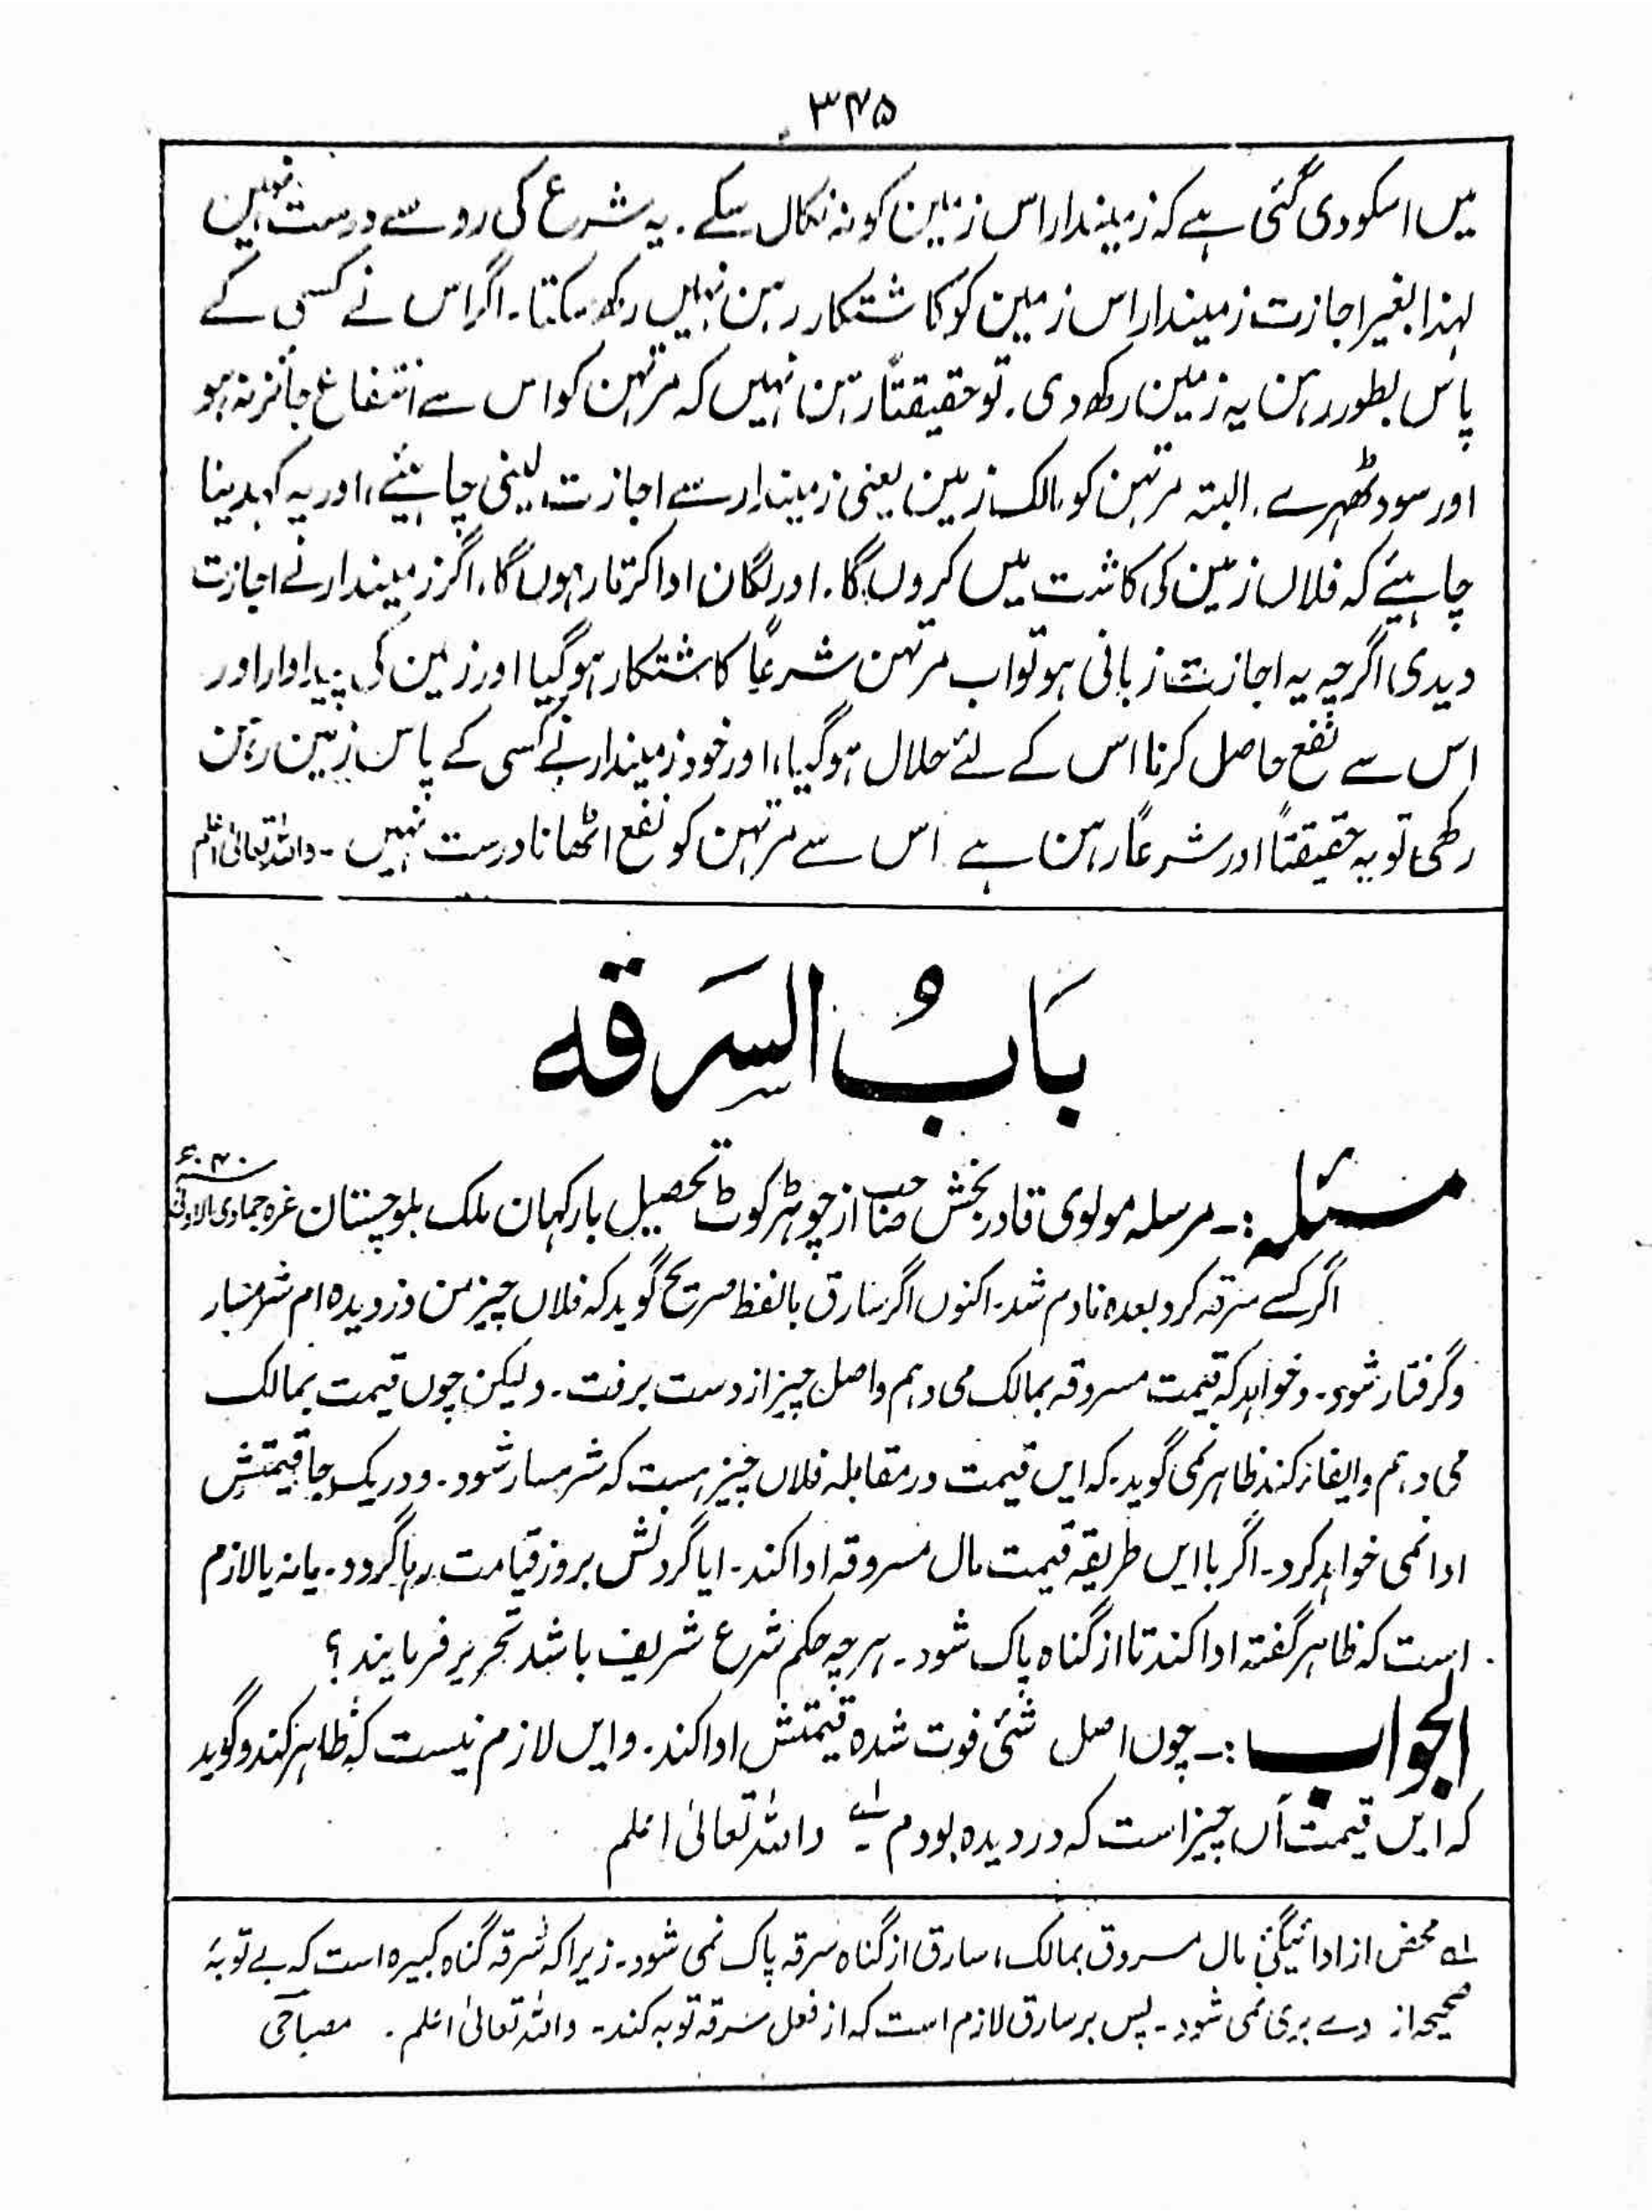 ۳۴۵
میں اسکو دی گئی ہے کہ زمیندار اس زمین کو نہ نکال سکے۔ یہ شرع کی رو سے درست نہیں
لہذا بغیر اجازت زمیندار اس زمین کو کاشتکار رہن نہیں رکھ سکتا۔ اگر اس نے کسی کے
پاس بطور رہن یہ زمین رکھ دی۔ تو حقیقتاً رہن نہیں کہ مرتہن کو اس سے انتفاع جائز نہ ہو
اور سود ٹھہرے۔ البتہ مرتہن کو مالک زمین یعنی زمیندار سے اجازت لینی چاہیئے، اور یہ کہدینا
چاہیئے کہ فلاں زمین کی کاشت میں کروں گا۔ اور لگان ادا کرتا رہوں گا، اگر زمیندار نے اجازت
دیدی اگرچہ یہ اجازت زبانی ہو تو اب مرتہن شرعاً کاشتکار ہو گیا اور زمین کی پیداوار اور
اس سے نفع حاصل کرنا اس کے لئے حلال ہو گیا، اور خود زمیندار نے کسی کے پاس زمین رہن
رکھی، تو یہ حقیقتاً اور شرعاً رہن ہے اس سے مرتہن کو نفع اٹھانا درست نہیں ۔ واللہ تعالیٰ اعلم
بَابُ السَّرِقَہ
مسئلہ:۔ مرسلہ مولوی قادر بخش صاحب از چوہڑ کوٹ تحصیل بارکھان ملک بلوچستان غرہ جمادی الاولیٰ ۴۰ھ
اگر کسے سرقہ کرد بعدہ نادم شد۔ اکنوں اگر سارق بالفظ صریح گوید کہ فلاں چیز من دزدیدہ ام شرمسار
وگرفتار شود۔ وخواہد کہ قیمت مسروقہ بمالک می دہم واصل چیز از دست برفت۔ ولیکن چوں قیمت بمالک
می دہم وایفا کند ظاہر نمی گوید۔ کہ ایں قیمت در مقابلہ فلاں چیز ہست کہ شرمسار شود۔ ودر یک جا قیمتش
ادا نمی خواہد کرد۔ اگر بااین طریقہ قیمت مال مسروقہ ادا کند۔ ایا گردنش بروز قیامت رہا گردد۔ یا نہ یا لازم
است کہ ظاہر گفتہ ادا کند تا از گناہ پاک شود۔ ہر چہ حکم شرع شریف باشد تحریر فرمایند؟
الجواب:۔ چوں اصل شئی فوت شدہ قیمتش ادا کند۔ وایں لازم نیست کہ ظاہر کند وگوید
کہ ایں قیمت آں چیز است کہ دزدیدہ بودم ۱ واللہ تعالیٰ اعلم
۱ محض از ادائیگئ مال مسروق بمالک، سارق از گناہ سرقہ پاک نمی شود۔ زیرا کہ سرقہ گناہ کبیرہ است کہ بے توبۂ
صحیحہ از وے بری نمی شود۔ پس بر سارق لازم است کہ از فعل سرقہ توبہ کند۔ واللہ تعالیٰ اعلم۔ مصباحی